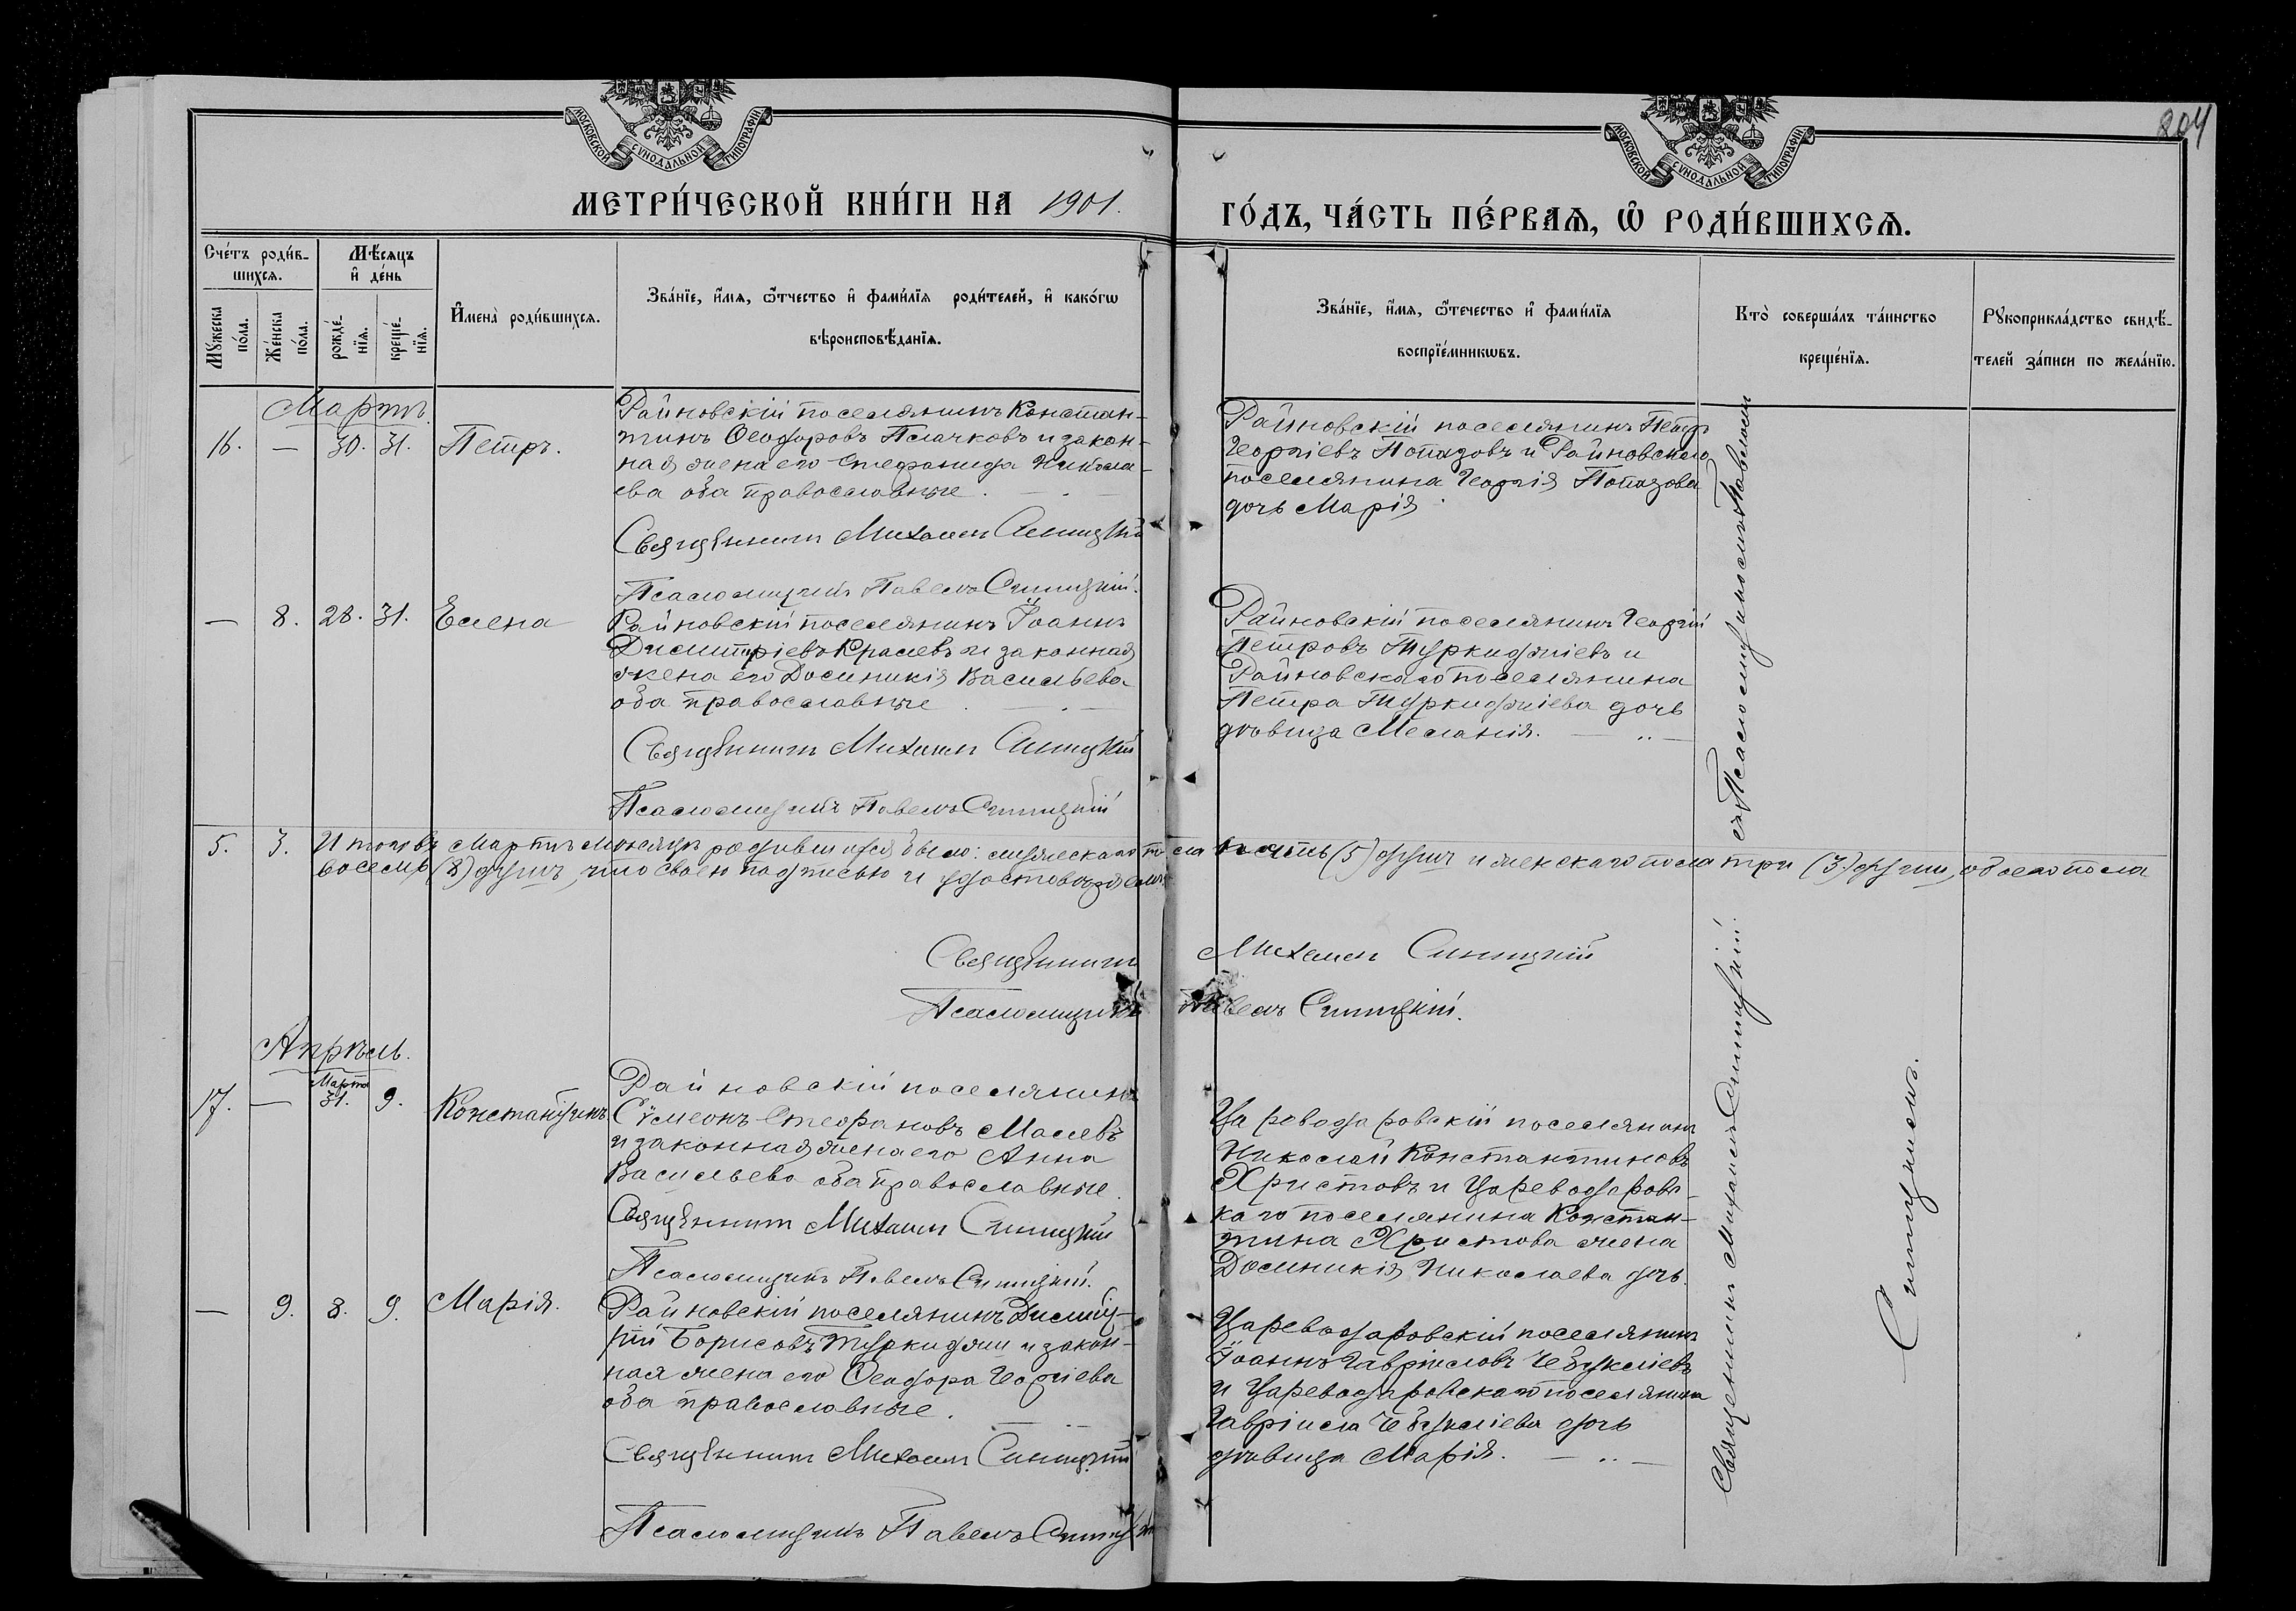 804
МОСКОВСКОЙ СѴНОДАЛЬНОЙ ТИПОГРАФІИ
МОСКОВСКОЙ СѴНОДАЛЬНОЙ ТИПОГРАФІИ
МЕТРИ́ЧЕСКОЙ КНИ́ГИ НА 1901.
ГО́ДЪ, ЧА́СТЬ ПЕ́РВАѦ, Ѡ РОДИ́ВШИХСѦ.
Сче́тъ роди́в-
шихсѧ.
Мѣ́сѧцъ
и҆ де́нь
Мꙋжеска
по́ла.
Же́нска
по́ла.
рожде́-
нїѧ.
креще́-
нїѧ.
И҆мена̀ роди́вшихсѧ.
Зва́нїе, и҆́мѧ, ѻ҆́тчество и҆ фами́лїѧ роди́телей, и҆ како́гѡ
вѣроисповѣ́данїѧ.
Зва́нїе, и҆́мѧ, ѻ҆́течество и҆ фами́лїѧ
воспрїе́мникѡвъ.
Кто̀ соверша́лъ та́инство
креще́нїѧ.
Рꙋкоприкла́дство свидѣ́-
телей за́писи по жела́нїю.
Мартъ
16. — 30. 31. Петръ.
Райновскій поселянинъ Констан-
тинъ Ѳеодоровъ Плачковъ и закон-
ная жена его Стефанида Никола-
ева оба православные.
Священникъ Михаилъ Синицкій
Псаломщикъ Павелъ Синицкій.
Райновскій поселянинъ Петръ
Георгіевъ Попазовъ и Райновскаго
поселянина Георгія Попазова
дочь Марія
— 8. 28. 31. Елена
Райновскій поселянинъ Іоаннъ
Димитріевъ Кралевъ и законная
жена его Доминикія Васильева
оба православные
Священникъ Михаилъ Синицкій
Псаломщикъ Павелъ Синицкій
Райновскій поселянинъ Георгій
Петровъ Туркиджіевъ и
Райновскаго поселянина
Петра Туркиджіева дочь
дѣвица Меланія.
5. 3. Итого въ Мартѣ мѣсяцѣ родившихся было: мужескаго пола пять (5) душъ и женскаго пола три (3) души, обоего пола
восемь (8) душъ, что своею подписью и удостовѣряемъ
Священникъ Михаилъ Синицкій
Псаломщикъ Павелъ Синицкій.
Апрѣль.
17. — Марта 31. 9. Константинъ
Райновскій поселянинъ
Сѵмеонъ Стефановъ Малевъ
и законная жена его Анна
Васильева оба православные.
Священникъ Михаилъ Синицкій
Псаломщикъ Павелъ Синицкій.
Цареводаровскій поселянинъ
Николай Константиновъ
Христовъ и Цареводаровс-
каго поселянина Констан-
тина Христова жена
Доминикія Николаева дочь.
— 9. 8. 9. Марія.
Райновскій поселянинъ Димит-
рій Борисовъ Туркиджи и закон-
ная жена его Ѳеодора Георгіева
оба православные.
Священникъ Михаилъ Синицкій
Псаломщикъ Павелъ Синицкій
Цареводаровскій поселянинъ
Іоаннъ Гавріиловъ Чебукліевъ
и Цареводаровскаго поселянина
Гавріила Чебукліева дочь
дѣвица Марія.
Священникъ Михаилъ Синицкій. съ Псаломщикомъ Павеломъ
Синицкимъ.